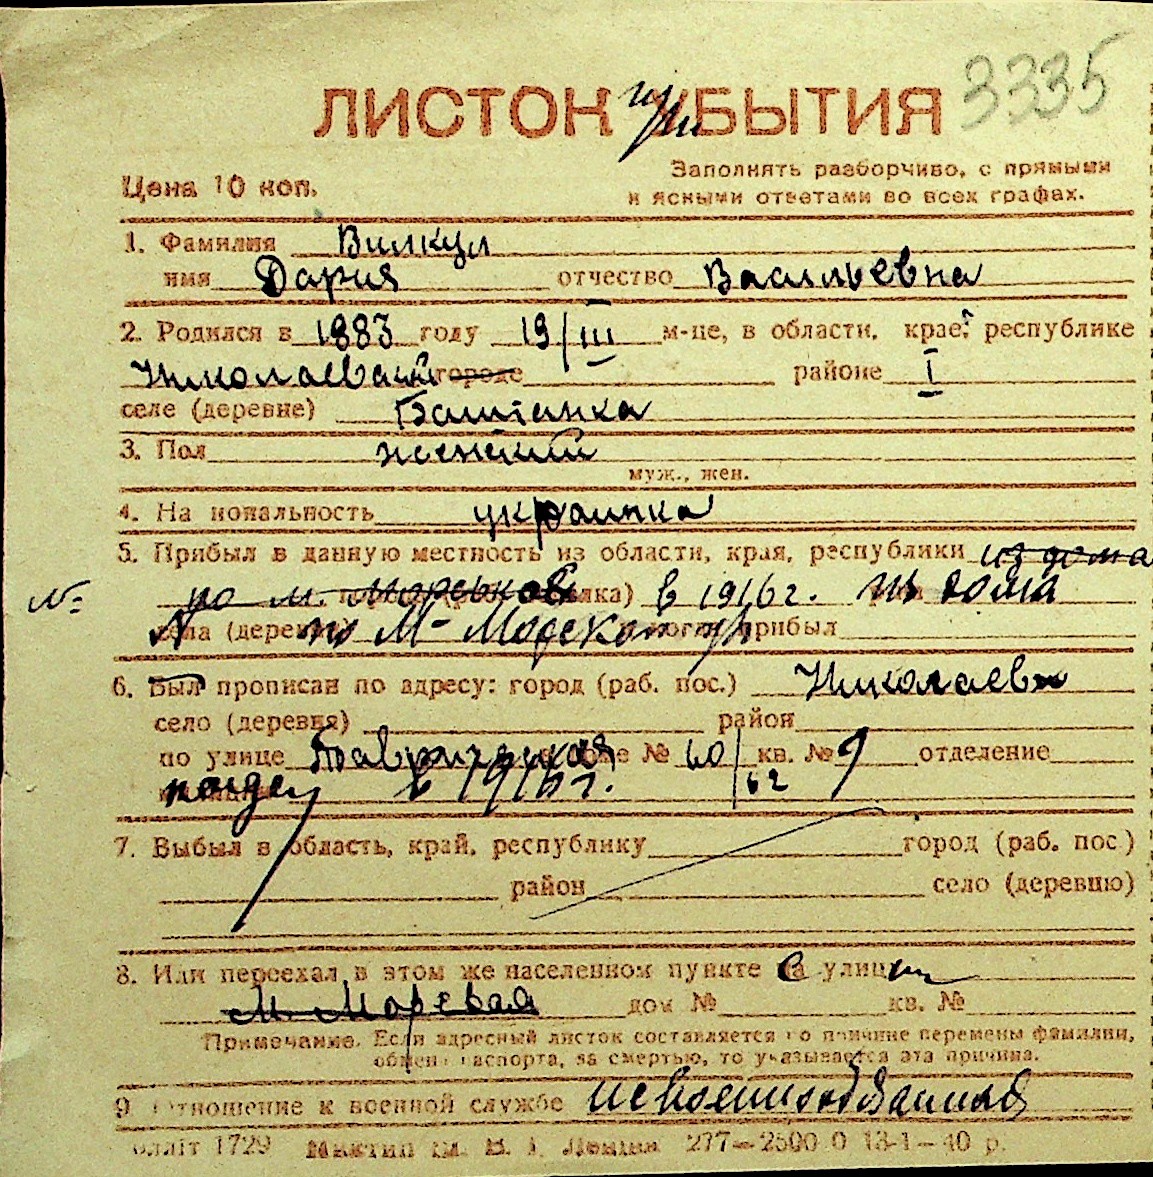 3335
ЛИСТОК УБЫТИЯ
Цена 10 коп.
Заполнять разборчиво, с прямыми
и ясными ответами во всех графах.
1. Фамилия Вилкул
имя Дария отчество Васильевна
2. Родился в 1883 году 19/III м-це, в области, крае, республике
Николаевский городе районе I
селе (деревне) Баштанка
3. Пол женский
муж., жен.
4. На иональность украинка
5. Прибыл в данную местность из области, края, республики из дома
№ по м. Морской в 1916 г. из дома
села (деревни) по М-Морской прибыл
6. Был прописан по адресу: город (раб. пос.) Николаев
село (деревня) район
по улице Таврическая № 60/62 кв. № 9 отделение
в 1916 г.
7. Выбыл в область, край, республику город (раб. пос.)
район село (деревню)
8. Или переехал в этом же населенном пункте улиц
М. Морская дом № кв. №
Примечание. Если адресный листок составляется по причине перемены фамилии,
обмена паспорта, за смертью, то указывается эта причина.
9 Отношение к военной службе невоеннообязанная
1729 им. В. І. Леніна 277—2500 0 13-1—40 р.